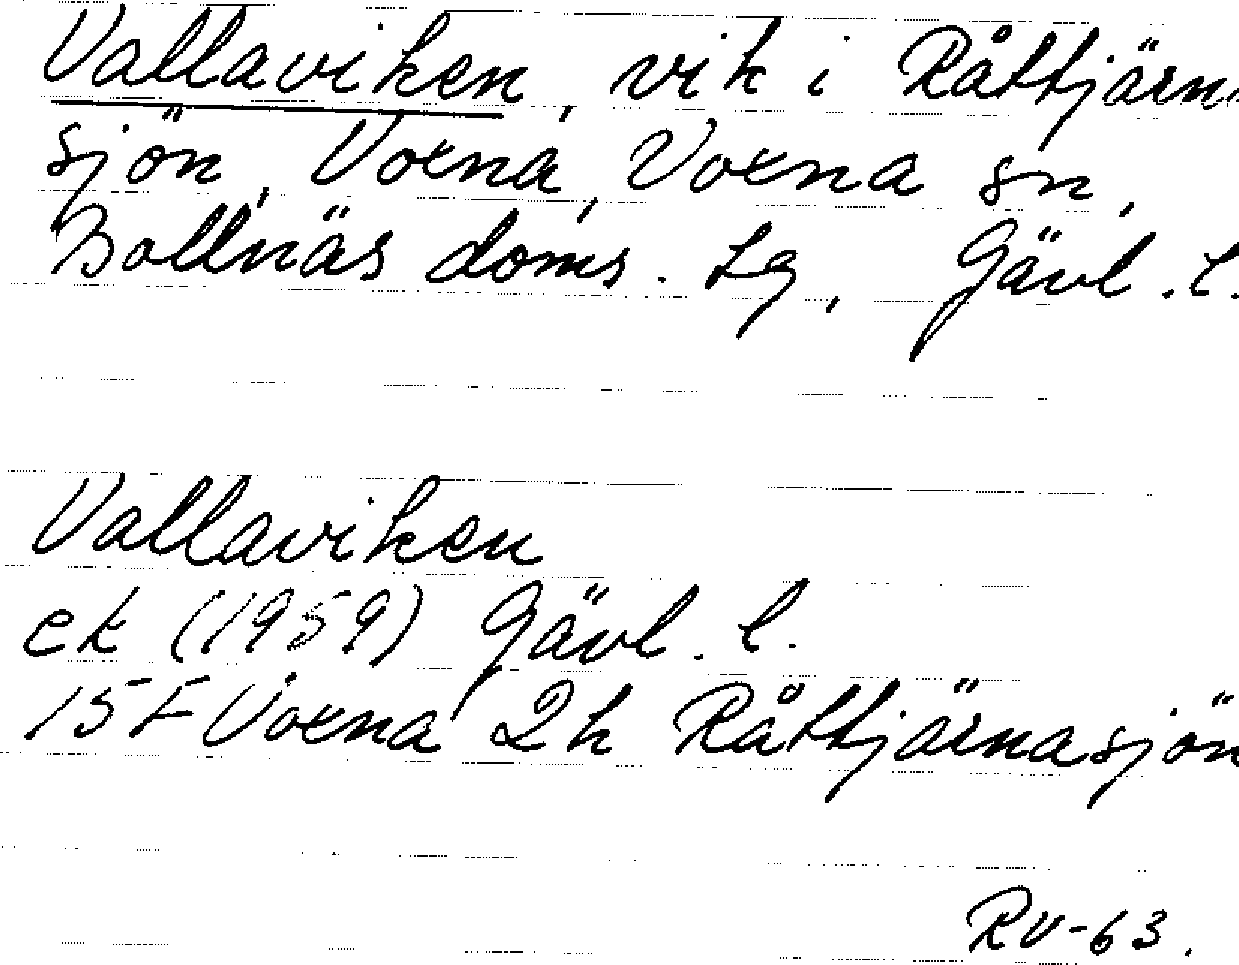 Vallaviken, vik i Råttjärna
sjön, Voxna, Voxna sn,
Bollnäs doms. Lg, Gävl. l.
Vallaviken
ek (1959) Gävl. l.
15F Voxna 2h Råttjärnasjön
RV-63.